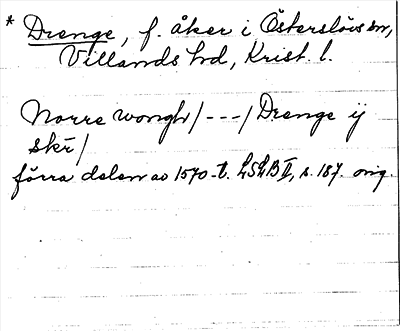 * Drenge, f. åker i Österslövs sn,
Villands hd, Krist. l.
Norre wongh/---/Drenge ij
skr̄/
förra delen av 1570-t. LSLB II, s. 187. orig.